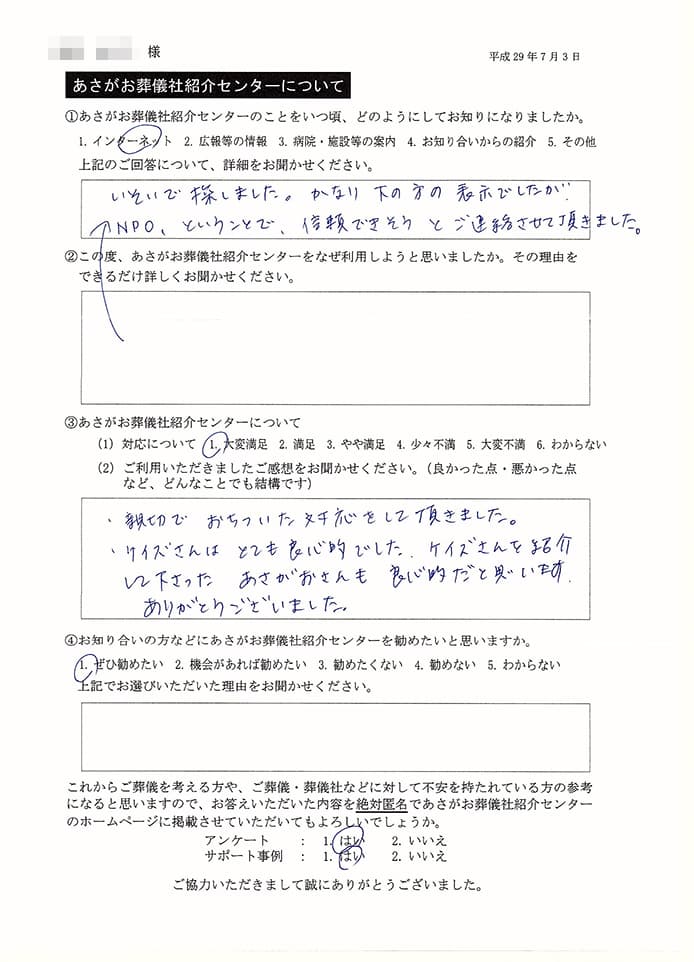 様
平成 29 年 7 月 3 日
あさがお葬儀社紹介センターについて
①あさがお葬儀社紹介センターのことをいつ頃、どのようにしてお知りになりましたか。
1. インターネット 2. 広報等の情報 3. 病院・施設等の案内 4. お知り合いからの紹介 5. その他
上記のご回答について、詳細をお聞かせください。
いそいで探しました。かなり下の方の表示でしたが
NPO、ということで、信頼できそうとご連絡させて頂きました。
②この度、あさがお葬儀社紹介センターをなぜ利用しようと思いましたか。その理由を
できるだけ詳しくお聞かせください。
③あさがお葬儀社紹介センターについて
(1) 対応について 1. 大変満足 2. 満足 3. やや満足 4. 少々不満 5. 大変不満 6. わからない
(2) ご利用いただきましたご感想をお聞かせください。（良かった点・悪かった点
など、どんなことでも結構です）
・親切で おちついた対応をして頂きました。
・ケイズさんは とても良心的でした. ケイズさんを紹介
して下さった あさがおさんも 良心的だと思います.
ありがとうございました。
④お知り合いの方などにあさがお葬儀社紹介センターを勧めたいと思いますか。
1. ぜひ勧めたい 2. 機会があれば勧めたい 3. 勧めたくない 4. 勧めない 5. わからない
上記でお選びいただいた理由をお聞かせください。
これからご葬儀を考える方や、ご葬儀・葬儀社などに対して不安を持たれている方の参考
になると思いますので、お答えいただいた内容を絶対匿名であさがお葬儀社紹介センター
のホームページに掲載させていただいてもよろしいでしょうか。
アンケート : 1. はい 2. いいえ
サポート事例 : 1. はい 2. いいえ
ご協力いただきまして誠にありがとうございました。